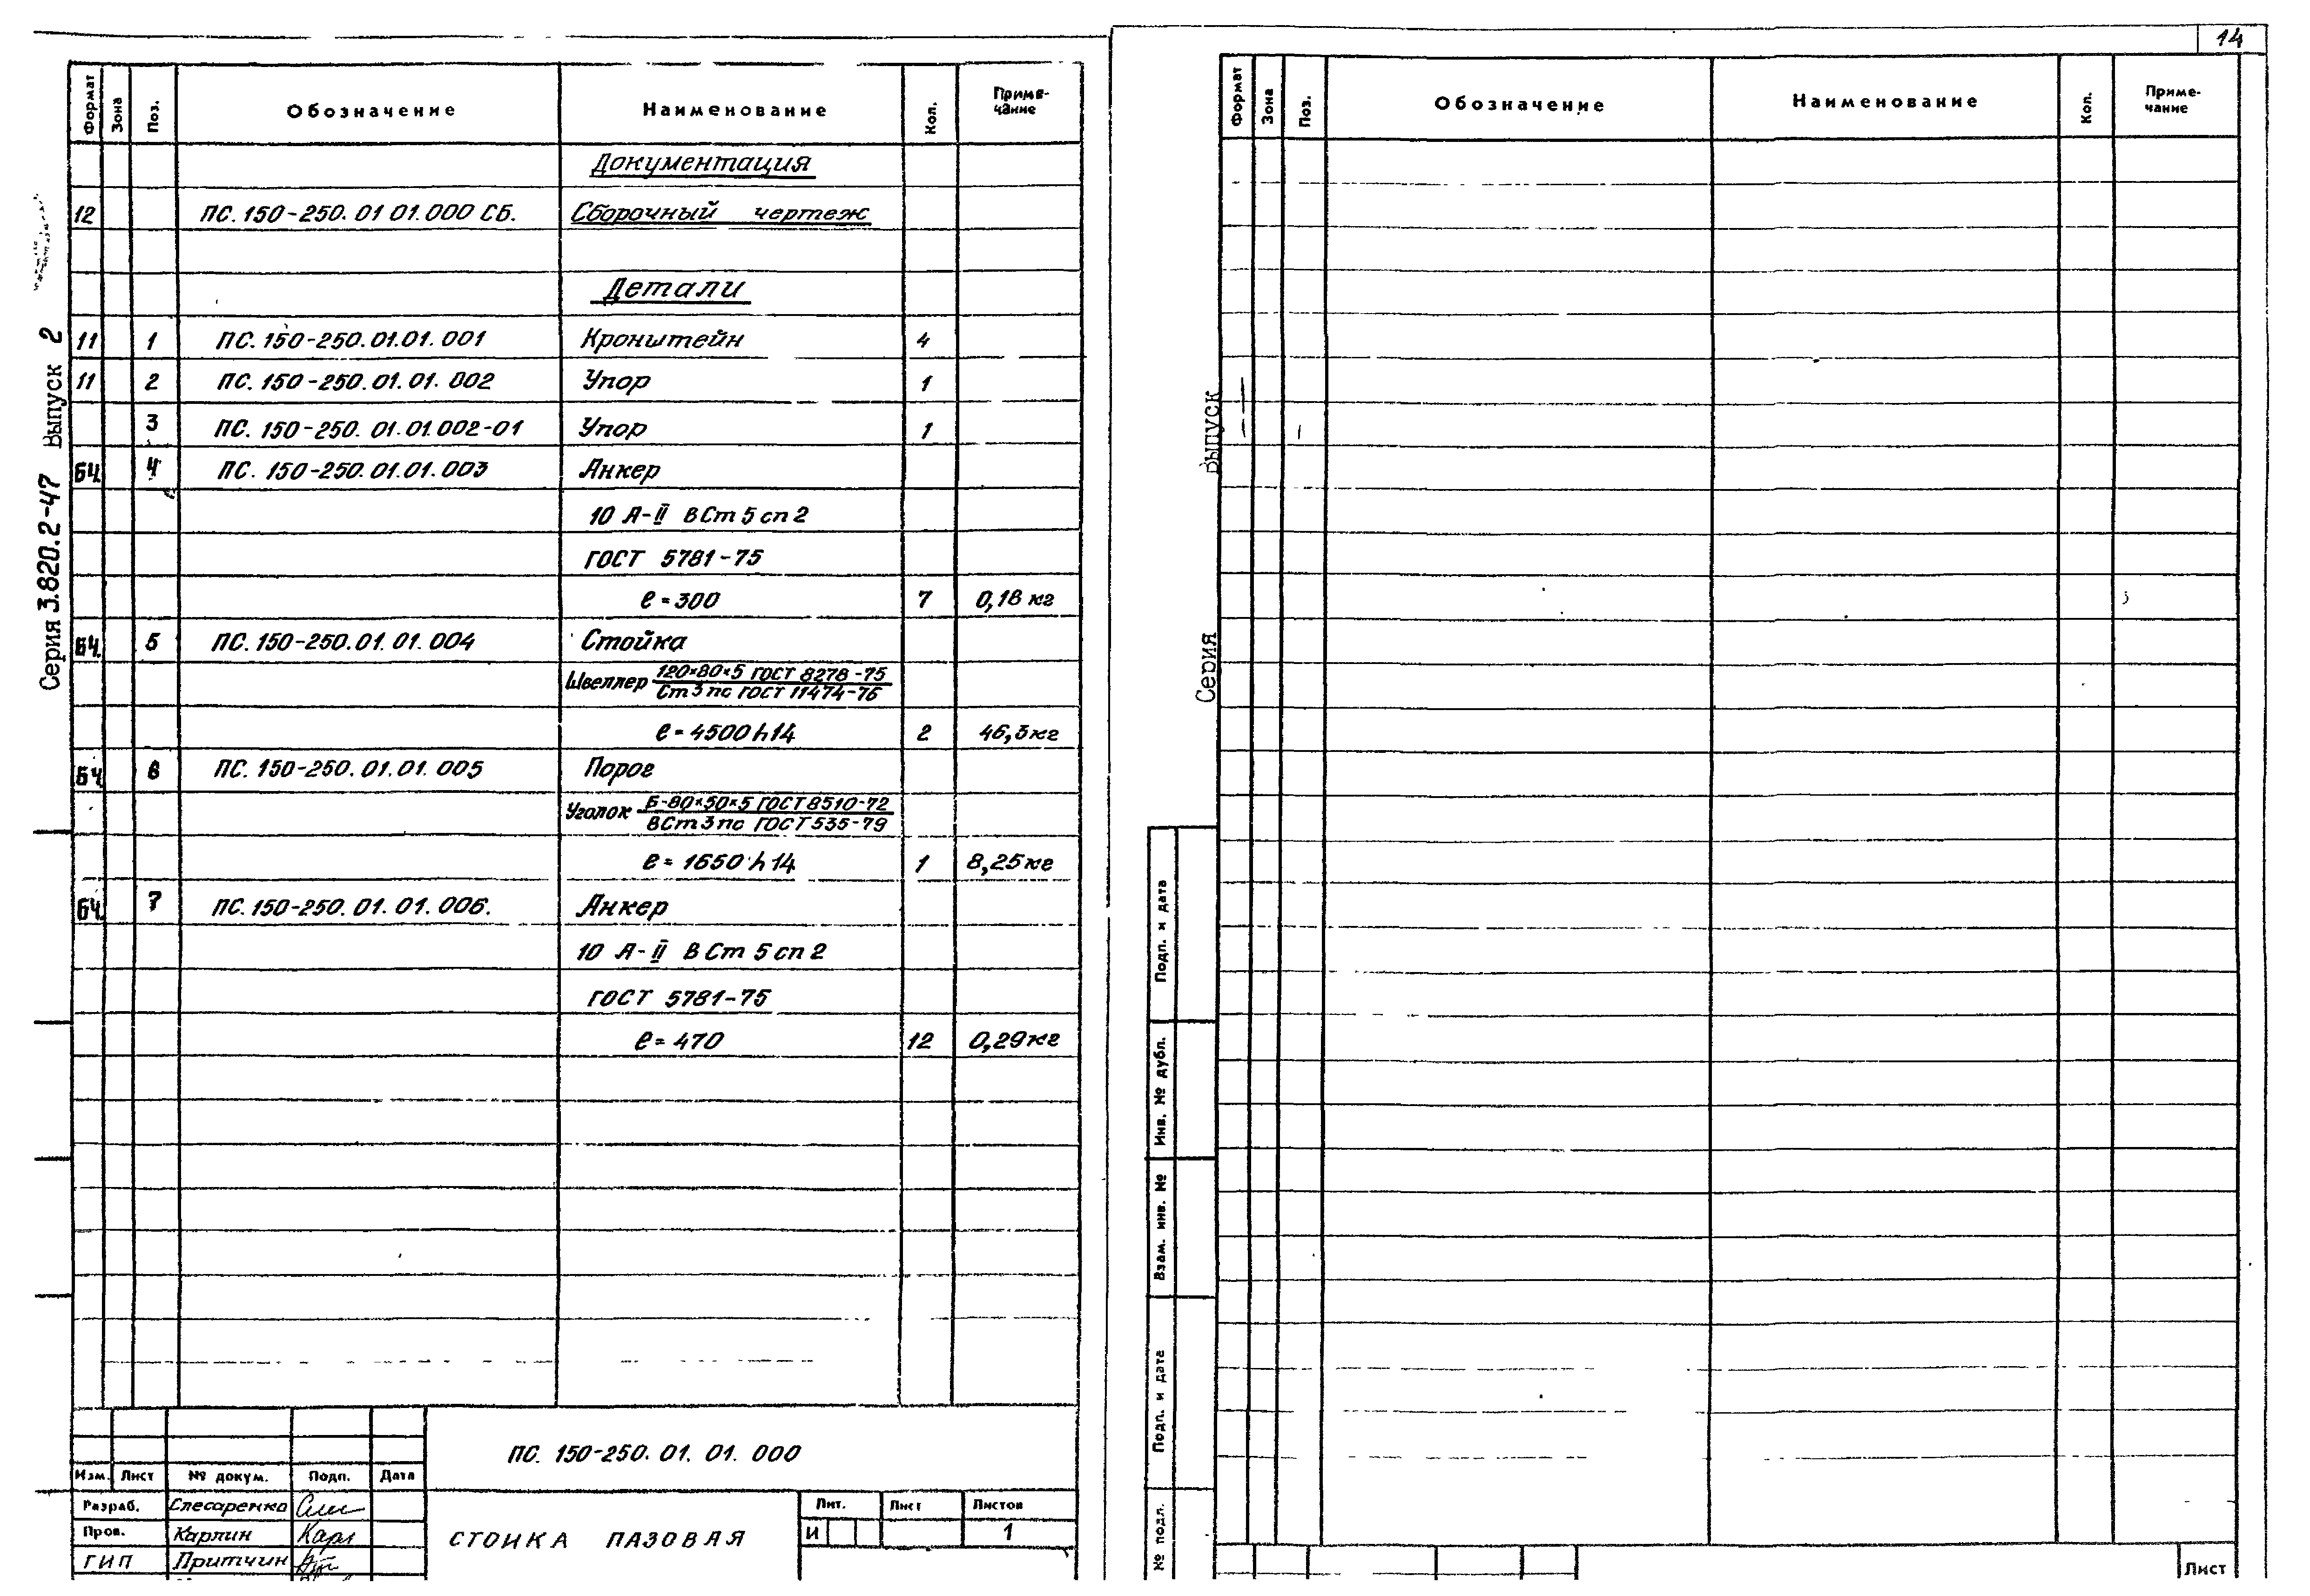 14
Формат Зона Поз. Обозначение Наименование Кол. Приме-чание
Документация
12 ПС.150-250.01 01.000 СБ. Сборочный чертеж
Детали
11 1 ПС.150-250.01.01.001 Кронштейн 4
11 2 ПС.150-250.01.01.002 Упор 1
3 ПС.150-250.01.01.002-01 Упор 1
БЧ. 4 ПС.150-250.01.01.003 Анкер
10 А-II ВСт5сп2
ГОСТ 5781-75
ℓ=300 7 0,18 кг
БЧ. 5 ПС.150-250.01.01.004 Стойка
Швеллер 120×80×5 ГОСТ 8278-75
Ст3пс ГОСТ 11474-76
ℓ=4500h14 2 46,3кг
БЧ 6 ПС.150-250.01.01.005 Порог
Уголок Б-80×50×5 ГОСТ 8510-72
ВСт3пс ГОСТ 535-79
ℓ=1650h14 1 8,25кг
БЧ. 7 ПС.150-250.01.01.006. Анкер
10 А-II ВСт5сп2
ГОСТ 5781-75
ℓ=470 12 0,29кг
Серия 3.820.2-47 Выпуск 2
ПС.150-250.01.01.000
Изм. Лист № докум. Подп. Дата
Разраб. Слесаренко
Пров. Карлин
ГИП Притчин
СТОЙКА ПАЗОВАЯ
Лит. Лист Листов
И 1
Формат Зона Поз. Обозначение Наименование Кол. Приме-чание
Серия выпуск
Подп. и дата
Инв. № дубл.
Взам. инв. №
Подп. и дата
№ подл.
Лист